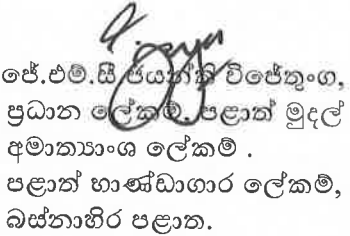 ජේ.එම්.සී ජයන්ති විජේතුංග,
ප්‍රධාන ලේකම්. පළාත් මුදල්
අමාත්‍යාංශ ලේකම් .
පළාත් භාණ්ඩාගාර ලේකම්,
බස්නාහිර පළාත.